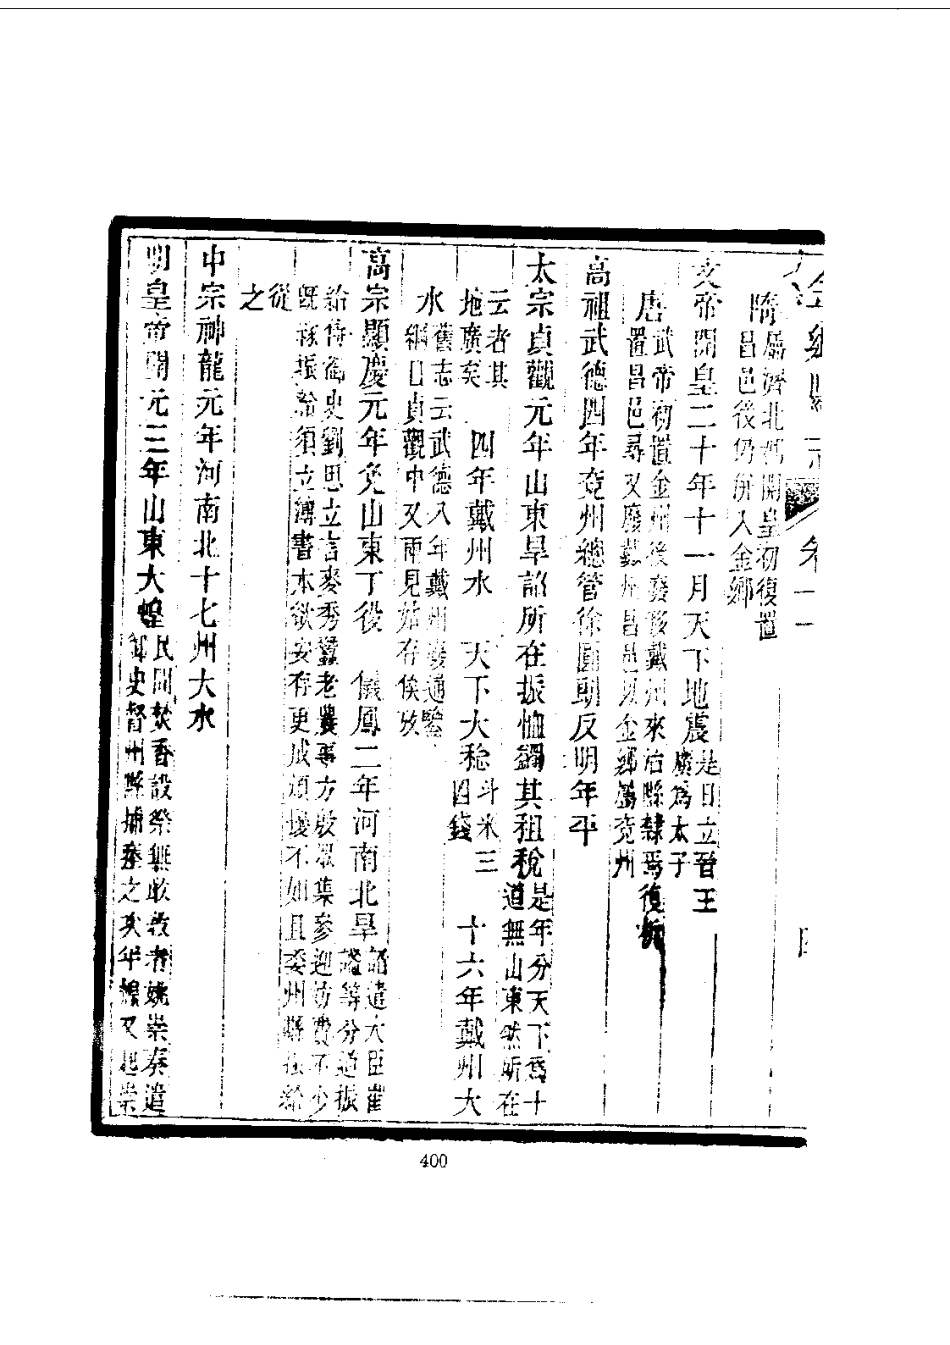 金鄉縣志 卷十一
隋屬濟北郡開皇初復置昌邑後仍併入金鄉
文帝開皇二十年十一月天下地震是日立晉王廣爲太子
唐武帝初置金州後廢移戴州來治縣隸焉復析置昌邑尋又廢戴州昌邑以金鄉屬兗州
高祖武德四年兗州總管徐圓朗反明年平
太宗貞觀元年山東旱詔所在振恤蠲其租稅是年分天下爲十道無山東然所在
云者其地廣矣 四年戴州水 天下大稔斗米三四錢 十六年戴州大
水舊志云武德八年戴州廢通鑑綱目貞觀中又兩見姑存俟攷
高宗顯慶元年免山東丁役 儀鳳二年河南北旱詔遣大臣崔謐等分道振
給侍御史劉思立言麥秀蠶老農事方殷聚集參迎妨費不少既緣振給須立簿書本欲安存更成煩擾不如且委州縣振給
從之
中宗神龍元年河南北十七州大水
明皇帝開元三年山東大蝗民間焚香設祭無敢救者姚崇奏遣御史督州縣捕瘞之次年蝗又起崇
400